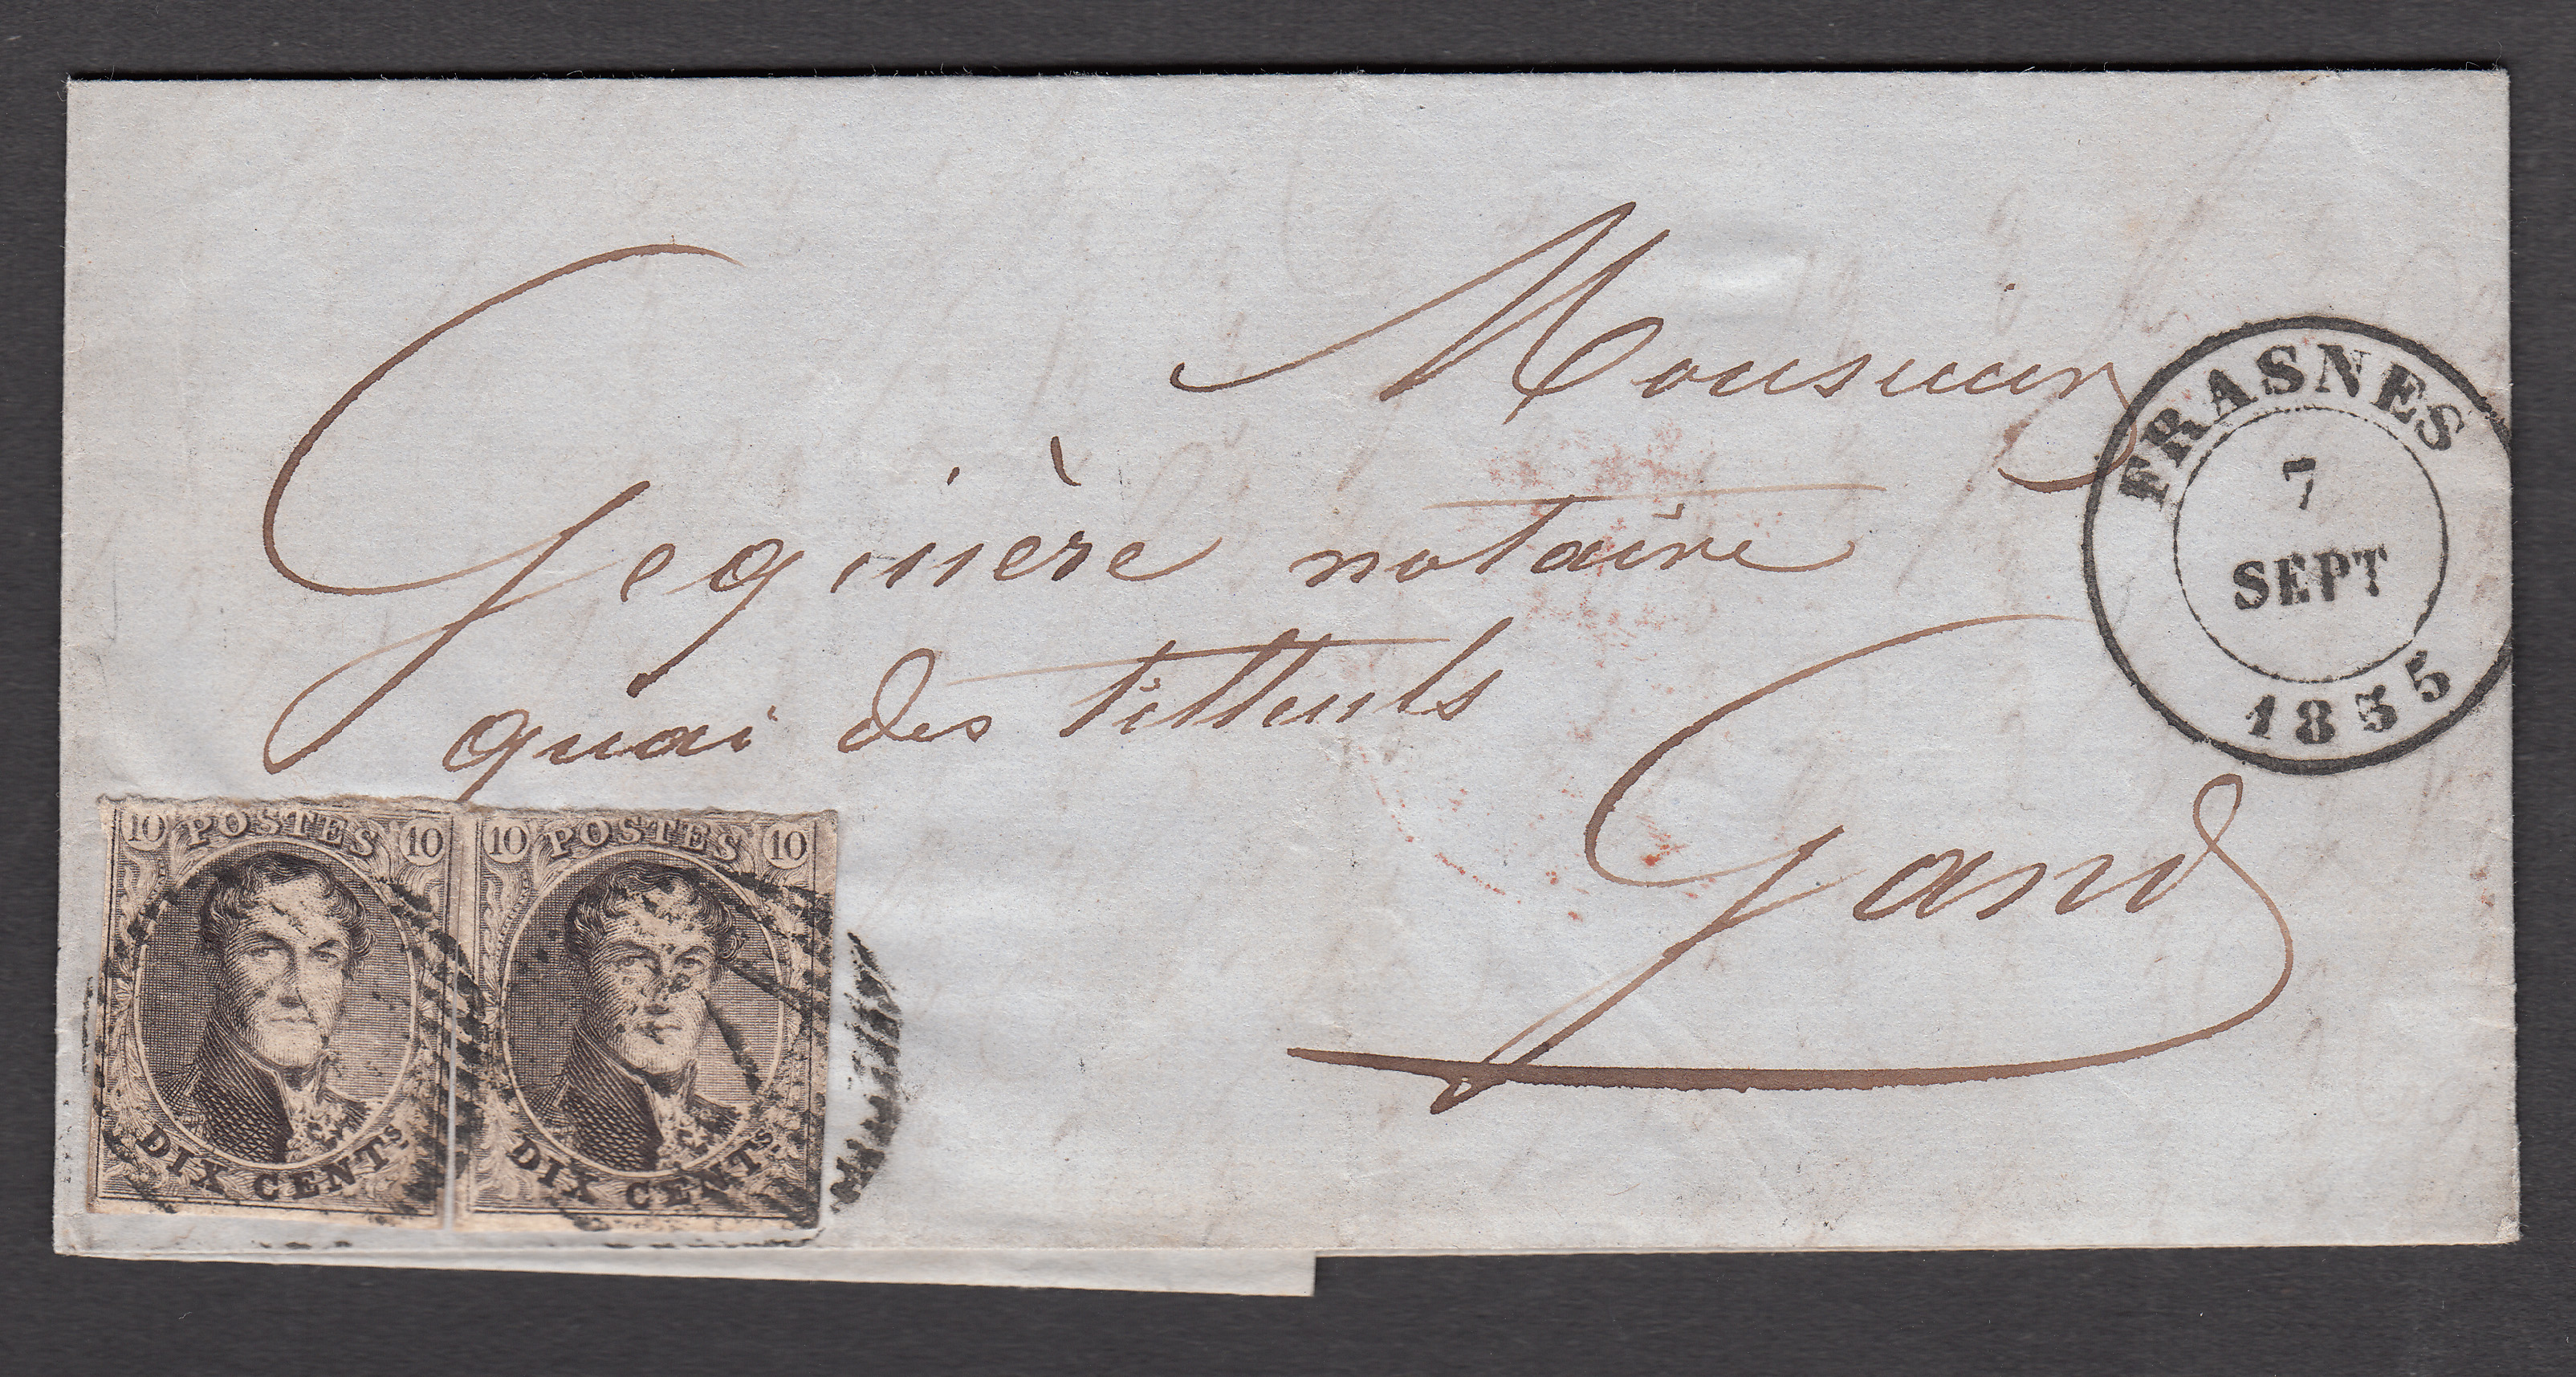 Monsieur
notaire
quai des tilleuls
Gand
FRASNES
7
SEPT
1855
10 POSTES 10
DIX CENTS
10 POSTES 10
DIX CENTS